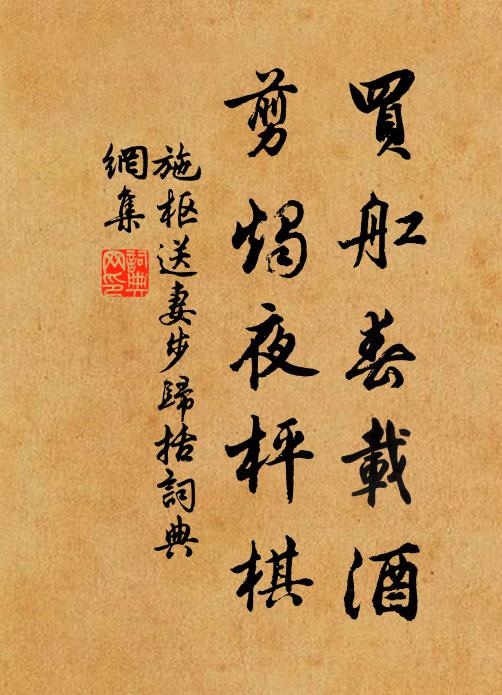 買舡春載酒
剪燭夜枰棋
施枢送妻步歸括詞典
網集
詞典
网印